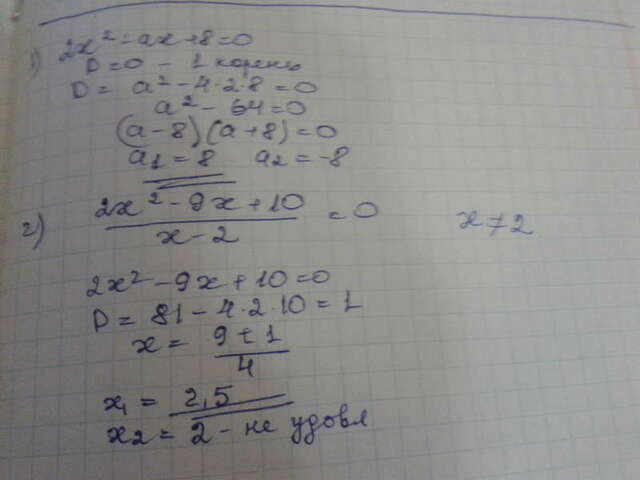 1) 2x² - ax + 8 = 0
D = 0 - 1 корень
D = a² - 4·2·8 = 0
a² - 64 = 0
(a - 8)(a + 8) = 0
a₁ = 8 a₂ = -8
2) (2x² - 9x + 10)/(x - 2) = 0 x ≠ 2
2x² - 9x + 10 = 0
D = 81 - 4·2·10 = 1
x = (9 ± 1)/4
x₁ = 2,5
x₂ = 2 - не удовл